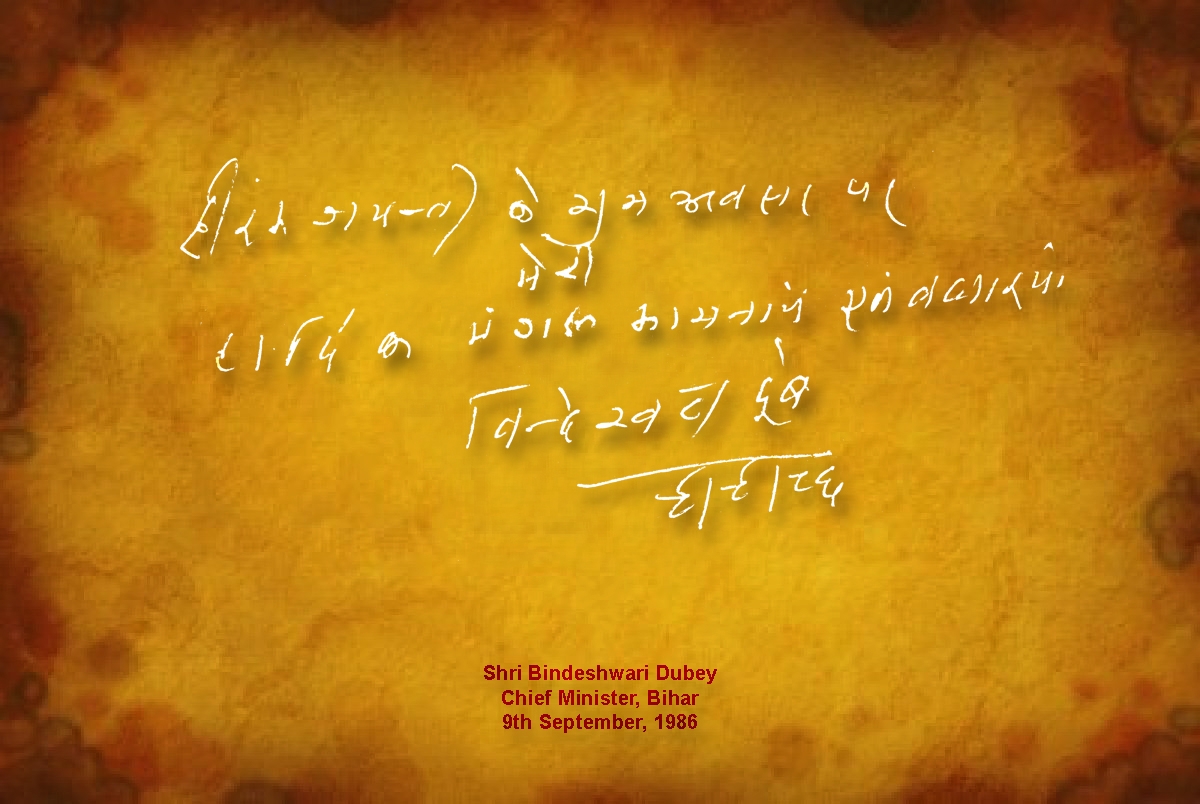 हीरक जयन्ती के शुभ अवसर पर
मेरी
हार्दिक मंगल कामनायें
विन्देश्वरी दूबे
9/9/86
Shri Bindeshwari Dubey
Chief Minister, Bihar
9th September, 1986